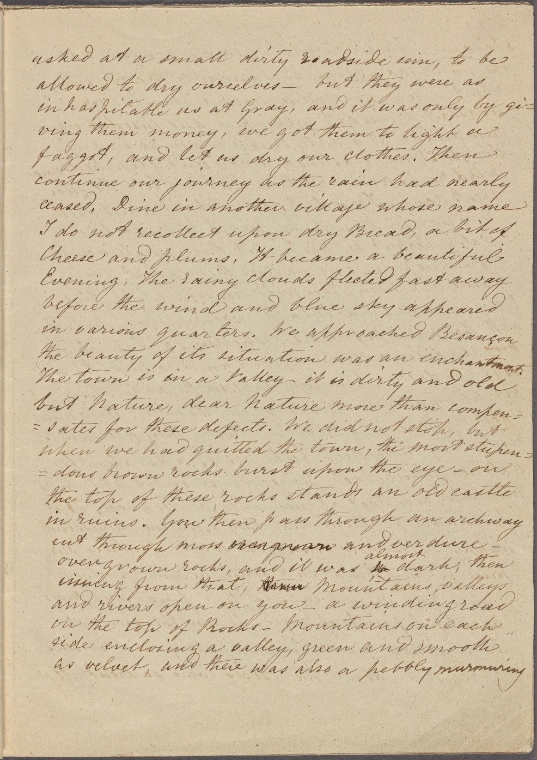 asked at a small dirty roadside inn, to be
allowed to dry ourselves — but they were as
inhospitable as at Gray, and it was only by gi=
ving them money, we got them to light a
faggot, and let us dry our clothes. Then
continue our journey as the rain had nearly
ceased. Dine in another village whose name
I do not recollect upon dry Bread, a bit of
Cheese and plums. It became a beautiful
Evening. The rainy clouds fleeted fast away
before the wind and blue sky appeared
in various quarters. We approached Besançon
the beauty of its situation was an enchantment.
The town is in a Valley — it is dirty and old
but Nature, dear Nature more than compen=
=sates for these defects. We did not stop, but
when we had quitted the town, the most stupen=
=dous brown rocks burst upon the eye — on
the top of these rocks stands an old castle
in ruins. You then pass through an archway
cut through moss and verdure —
overgrown rocks, and it was almost dark, then
issuing from that, Mountains, valleys
and rivers open on you — a winding road
on the top of Rocks — Mountains on each
side enclosing a valley, green and smooth
as velvet, and there was also a pebbly murmuring